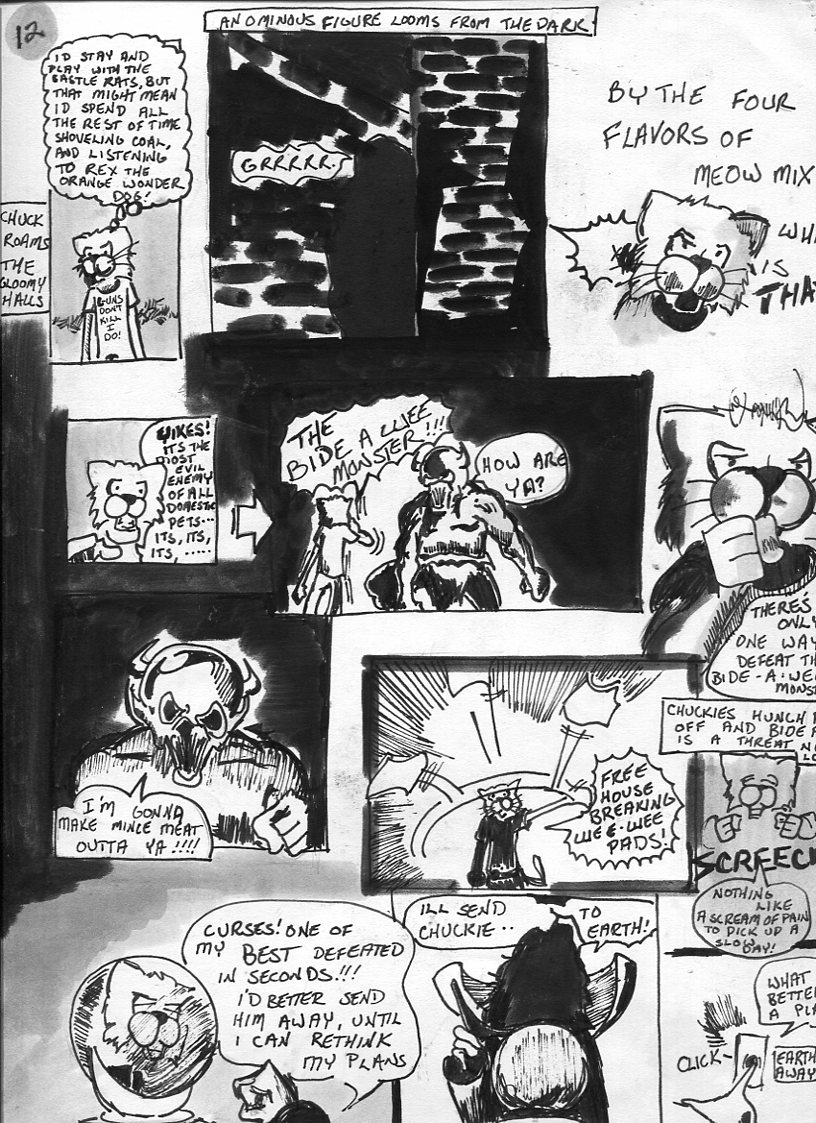 12
AN OMINOUS FIGURE LOOMS FROM THE DARK
I'D STAY AND
PLAY WITH THE
CASTLE RATS, BUT
THAT MIGHT MEAN
I'D SPEND ALL
THE REST OF TIME
SHOVELING COAL,
AND LISTENING
TO REX THE
ORANGE WONDER
DOG!
CHUCK
ROAMS
THE
GLOOMY
HALLS
GUNS
DONT
KILL
I
DO!
GRRRRR.
BY THE FOUR
FLAVORS OF
MEOW MIX
WH
IS
THA
YIKES!
IT'S THE
MOST
EVIL
ENEMY
OF ALL
DOMESTIC
PETS...
ITS, ITS,
ITS, .....
THE
BIDE A WEE
MONSTER!!!
HOW ARE
YA?
THERE'S
ONLY
ONE WAY
DEFEAT TH
BIDE-A-WE
MONS
I'M GONNA
MAKE MINCE MEAT
OUTTA YA!!!!
FREE
HOUSE
BREAKING
WEE-WEE
PADS!
CHUCKIES HUNCH P
OFF AND BIDE A
IS A THREAT N
LO
SCREECH
NOTHING
LIKE
A SCREAM OF PAIN
TO PICK UP A
SLOW
DAY!
CURSES! ONE OF
MY BEST DEFEATED
IN SECONDS.!!!
I'D BETTER SEND
HIM AWAY, UNTIL
I CAN RETHINK
MY PLANS
ILL SEND
CHUCKIE..
TO
EARTH!
WHAT
BETTER
A PLA
CLICK-
EARTH
AWAY